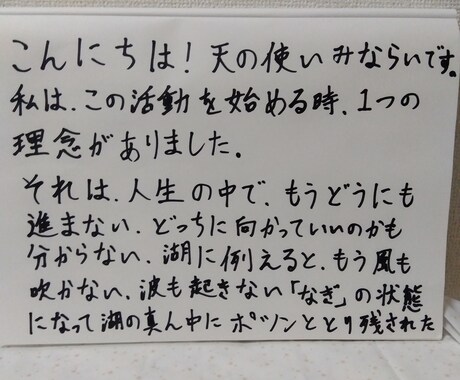 こんにちは！天の使いみならいです。
私は、この活動を始める時、1つの
理念がありました。
それは、人生の中で、もうどうにも
進まない、どっちに向かっていいのかも
分からない、湖に例えると、もう風も
吹かない、波も起きない「なぎ」の状態
になって湖の真ん中にポツンととり残された